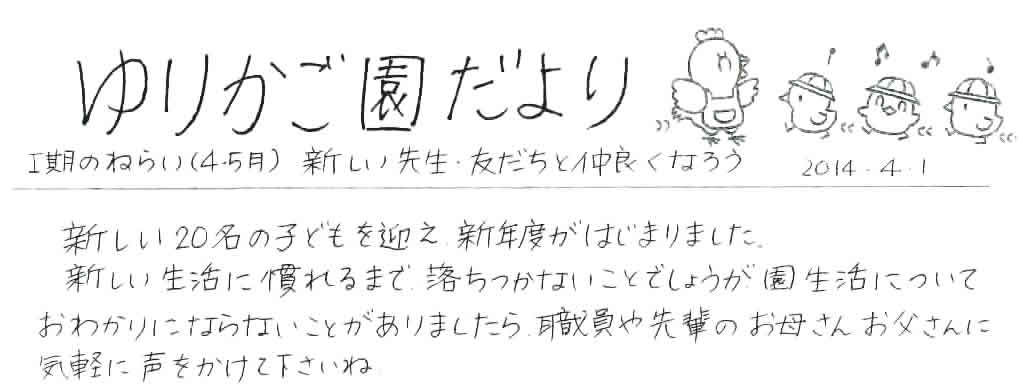 ゆりかご園だより
I期のねらい(4.5月) 新しい先生・友だちと仲良くなろう 2014.4.1
新しい20名の子どもを迎え、新年度がはじまりました。
新しい生活に慣れるまで、落ちつかないことでしょうが園生活について
おわかりにならないことがありましたら、職員や先輩のお母さんお父さんに
気軽に声をかけて下さいね